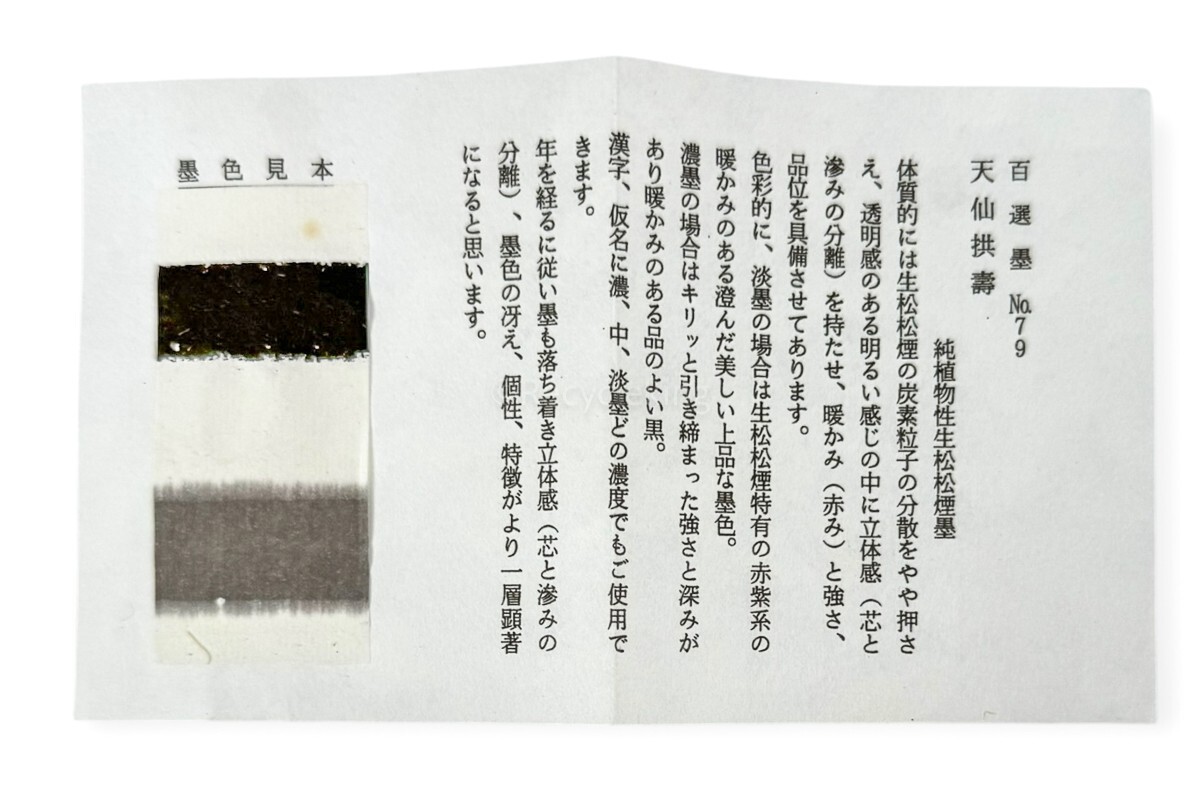 百選墨 №79
天仙拱壽
純植物性生松松煙墨
体質的には生松松煙の炭素粒子の分散をやや押さ
え、透明感のある明るい感じの中に立体感（芯と
滲みの分離）を持たせ、暖かみ（赤み）と強さ、
品位を具備させてあります。
色彩的に、淡墨の場合は生松松煙特有の赤紫系の
暖かみのある澄んだ美しい上品な墨色。
濃墨の場合はキリッと引き締まった強さと深みが
あり暖かみのある品のよい黒。
漢字、仮名に濃、中、淡墨どの濃度でもご使用で
きます。
年を経るに従い墨も落ち着き立体感（芯と滲みの
分離）、墨色の冴え、個性、特徴がより一層顕著
になると思います。
墨色見本